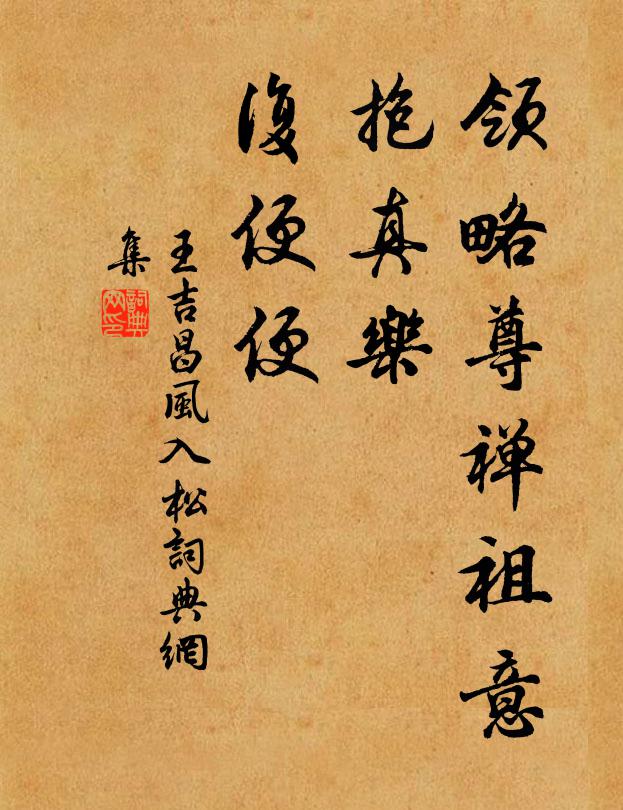 領略尊禅祖意
抱真樂
復便便
王吉昌風入松詞典網
集
詞典
网印